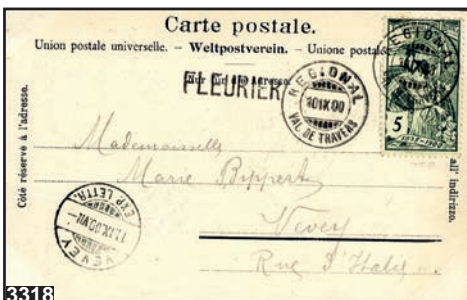 Carte postale.
Union postale universelle. – Weltpostverein. – Unione postale
Nur für die Adresse.
FLEURIER
REGIONAL
10 IX 00
VAL DE TRAVERS
REGIONAL
5
Côté réservé à l'adresse.
all' indirizzo.
Mademoiselle
Marie Bippert
Vevey
Rue d'Italie
VEVEY
11.IX.00.VII
EXP. LETTR.
3318